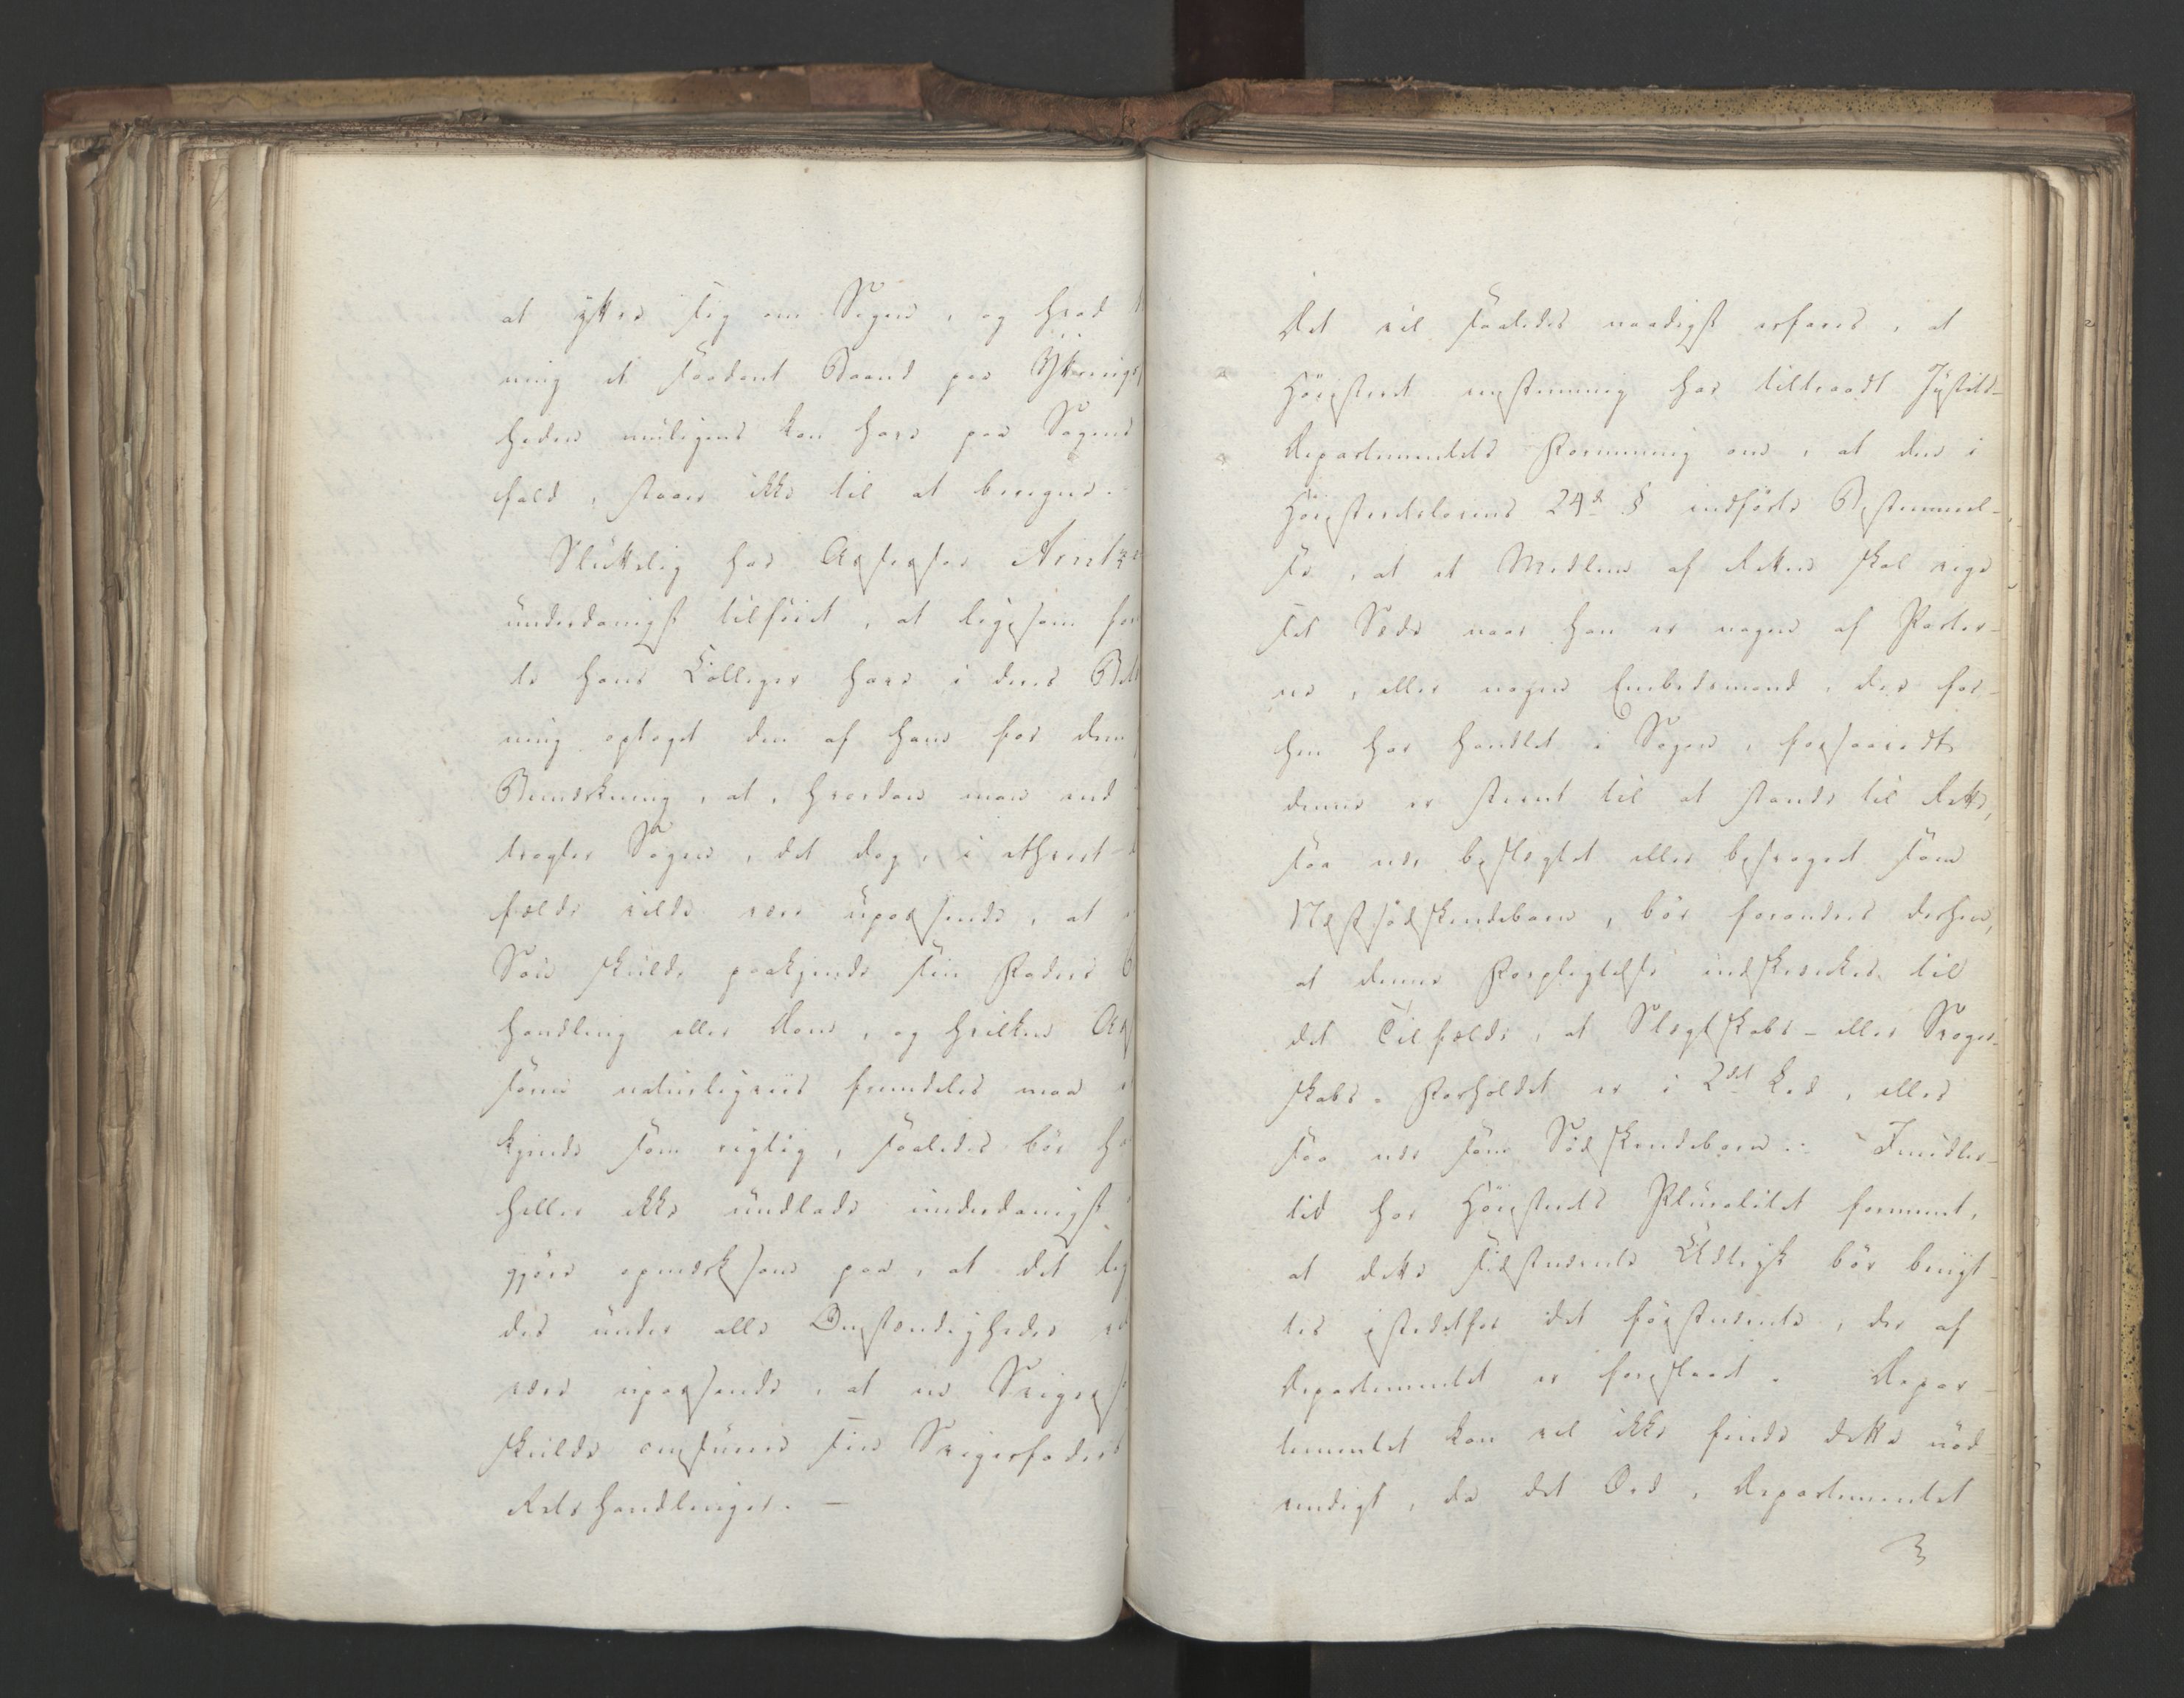 at yttre sig om Sagen, og hvad
ning et saadant Baand paa Yttrings
heden muligens kan have paa Sagens
fald, staaer ikke til at beregne.
Sluttelig har Assessor Arntze
underdanigst tilföiet, at ligesom for
te hans Colleger have i deres Be
ning optaget den af ham for dem
Bemærkning, at, hvordan man end
tragter Sagen, det dog, i ethvert
fælde vilde være upassende, at
Sön skulde paakjende sin Faders
handling eller Dom, og hvilken
somme naturligviis fremdeles maa
kjende som rigtig, saaledes bör h
heller ikke undlade underdanigst
gjöre opmærksom paa, at det lig
des under alle Omstændigheder v
være upassende, at en Svigers
skulde censurere sin Svigerfaders
Retshandlinger. —
Det vil saaledes naadigst erfares, at
Höiesteret eenstemmig har tiltraadt Justits-
Departementets Formening om, at den i
Höiesteretslovens 24de § indförte Bestemmel-
se, at et Medlem af Retten skal vige
sit Sæde naar han er nogen af Parter-
ne, eller nogen Embedsmand, der for-
hen har handlet i Sagen, forsaavidt
denne er stevnt til at stande til Rette,
saa nær beslegtet eller besvogret som
Næstsödskendebarn, bör forandres derhen,
at denne Forpligtelse indskrænkes til
det Tilfælde, at Slegtskabs- eller Svoger-
skabs-Forholdet er i 2det Led, eller
saa nær som Södskendebarn. Imidler-
tid har Höiesterets Pluralitet formeent,
at dette sidstnævnte Udtryk bör benyt-
tes istedetfor det förstnævnte, der af
Departementet er foreslaaet. Depar-
tementet kan vel ikke finde dette nöd-
vendigt, da det Ord, Departementet